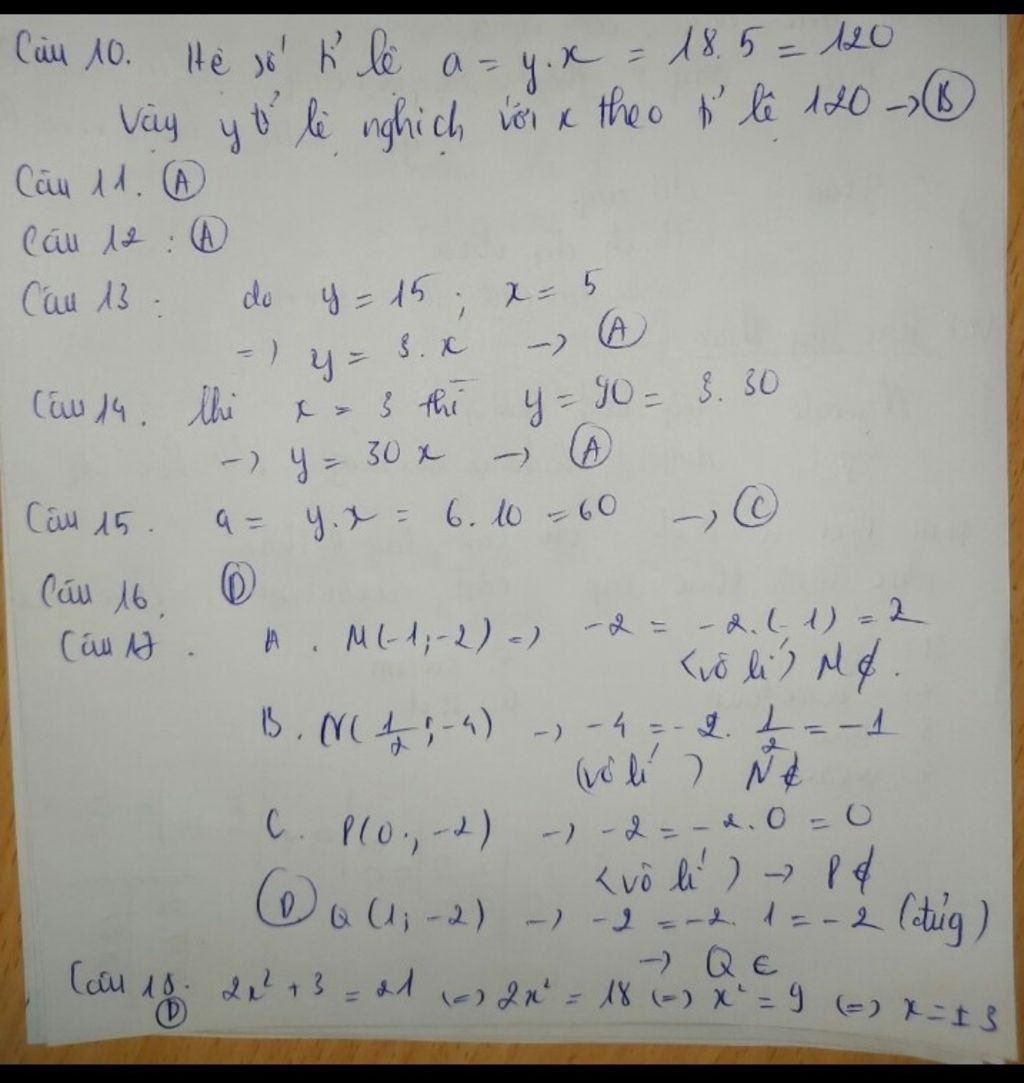 Câu 10. Hệ số tỉ lệ a = y.x = 18.5 = 120
Vậy y tỉ lệ nghịch với x theo tỉ lệ 120 → B
Câu 11. A
Câu 12 : A
Câu 13 : do y = 15 ; x = 5
=> y = 3.x → A
Câu 14. Khi x = 3 thì y = 90 = 3.30
→ y = 30x → A
Câu 15. a = y.x = 6.10 = 60 → C
Câu 16. D
Câu 17. A. M(-1;-2) => -2 = -2.(-1) = 2
<vô lí) M ∉.
B. N(1/2;-4) → -4 = -2. 1/2 = -1
(vô lí) N ∉
C. P(0;-2) → -2 = -2.0 = 0
<vô lí) → P ∉
D Q(1;-2) → -2 = -2.1 = -2 (đúg)
→ Q ∈
Câu 18. 2x² + 3 = 21 <=> 2x² = 18 <=> x² = 9 <=> x = ±3
D